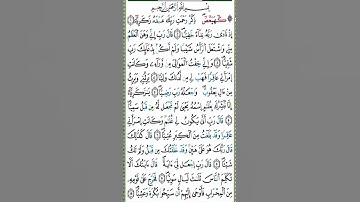 بِسْمِ اللَّهِ الرَّحْمَٰنِ الرَّحِيمِ
كٓهيعٓصٓ ۝١ ذِكْرُ رَحْمَتِ رَبِّكَ عَبْدَهُۥ زَكَرِيَّآ ۝٢
إِذْ نَادَىٰ رَبَّهُۥ نِدَآءً خَفِيًّا ۝٣ قَالَ رَبِّ إِنِّى وَهَنَ ٱلْعَظْمُ
مِنِّى وَٱشْتَعَلَ ٱلرَّأْسُ شَيْبًا وَلَمْ أَكُنۢ بِدُعَآئِكَ رَبِّ
شَقِيًّا ۝٤ وَإِنِّى خِفْتُ ٱلْمَوَٰلِىَ مِن وَرَآءِى وَكَانَتِ
ٱمْرَأَتِى عَاقِرًا فَهَبْ لِى مِن لَّدُنكَ وَلِيًّا ۝٥ يَرِثُنِى وَيَرِثُ
مِنْ ءَالِ يَعْقُوبَ وَٱجْعَلْهُ رَبِّ رَضِيًّا ۝٦ يَٰزَكَرِيَّآ
إِنَّا نُبَشِّرُكَ بِغُلَٰمٍ ٱسْمُهُۥ يَحْيَىٰ لَمْ نَجْعَل لَّهُۥ مِن قَبْلُ سَمِيًّا
۝٧ قَالَ رَبِّ أَنَّىٰ يَكُونُ لِى غُلَٰمٌ وَكَانَتِ ٱمْرَأَتِى
عَاقِرًا وَقَدْ بَلَغْتُ مِنَ ٱلْكِبَرِ عِتِيًّا ۝٨ قَالَ كَذَٰلِكَ
قَالَ رَبُّكَ هُوَ عَلَىَّ هَيِّنٌ وَقَدْ خَلَقْتُكَ مِن قَبْلُ وَلَمْ تَكُ
شَيْـًٔا ۝٩ قَالَ رَبِّ ٱجْعَل لِّىٓ ءَايَةً قَالَ ءَايَتُكَ أَلَّا
تُكَلِّمَ ٱلنَّاسَ ثَلَٰثَ لَيَالٍ سَوِيًّا ۝١٠ فَخَرَجَ عَلَىٰ قَوْمِهِۦ
مِنَ ٱلْمِحْرَابِ فَأَوْحَىٰٓ إِلَيْهِمْ أَن سَبِّحُوا۟ بُكْرَةً وَعَشِيًّا ۝١١